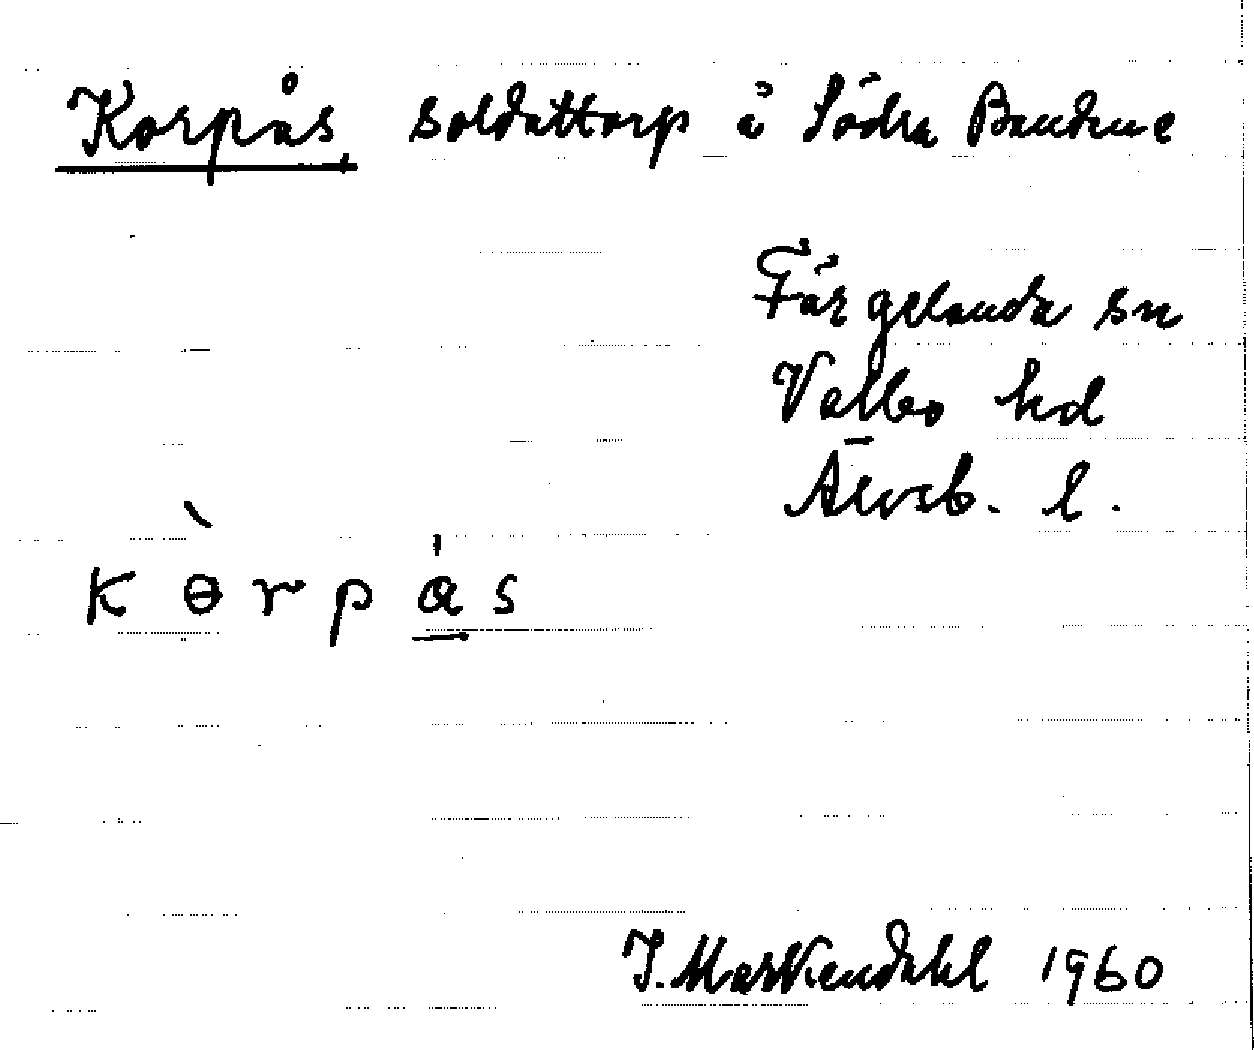 Korpås soldattorp å Södra Bandene
Färgelanda sn
Valbo hd
Älvsb. l.
k ɵ̀ r p å s
J. Markendahl 1960